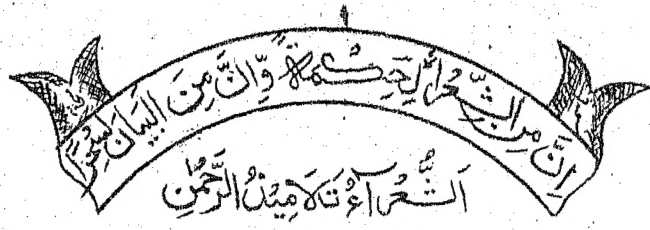 ۱
اِنَّ مِنَ الشِّعْرِ لَحِكْمَةً وَّاِنَّ مِنَ الْبَيَانِ لَسِحْرًا
اَلشُّعَرَآءُ تَلَامِيْذُ الرَّحْمٰنِ